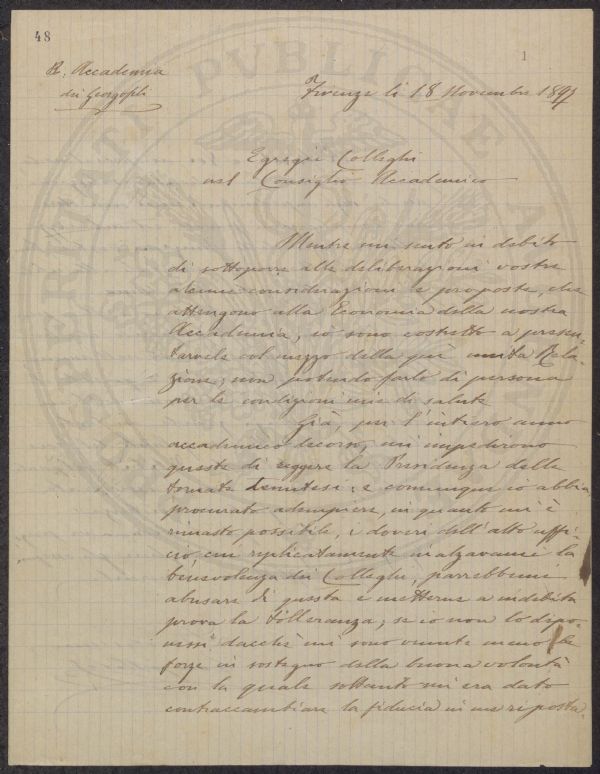 48
1
R. Accademia
dei Georgofili
Firenze li 18 Novembre 1897
Egregi Colleghi
del Consiglio Accademico
Mentre mi sento in debito
di sottoporre alle deliberazioni vostre
alcune considerazioni e proposte, che
attengono alla Economia della nostra
Accademia, io sono costretto a presen-
tarvele col mezzo della quì unita Rela-
zione, non potendo farlo di persona
per le condizioni mie di salute
Già, per l'intiero anno
accademico decorso, mi impedirono
queste di reggere la Presidenza delle
tornate tenutesi: e comunque io abbia
procurato adempiere, in quanto mi è
rimasto possibile, i doveri dell'alto uffi-
cio cui replicatamente inalzavami la
benevolenza dei Colleghi, parrebbemi
abusare di questa e metterne a indebita
prova la tolleranza, se io non lo dipo-
nessi dacchè mi sono venute meno le
forze in sostegno della buona volontà
con la quale soltanto mi era dato
contraccambiare la fiducia in me riposta.
PROSPERITATI PUBLICAE